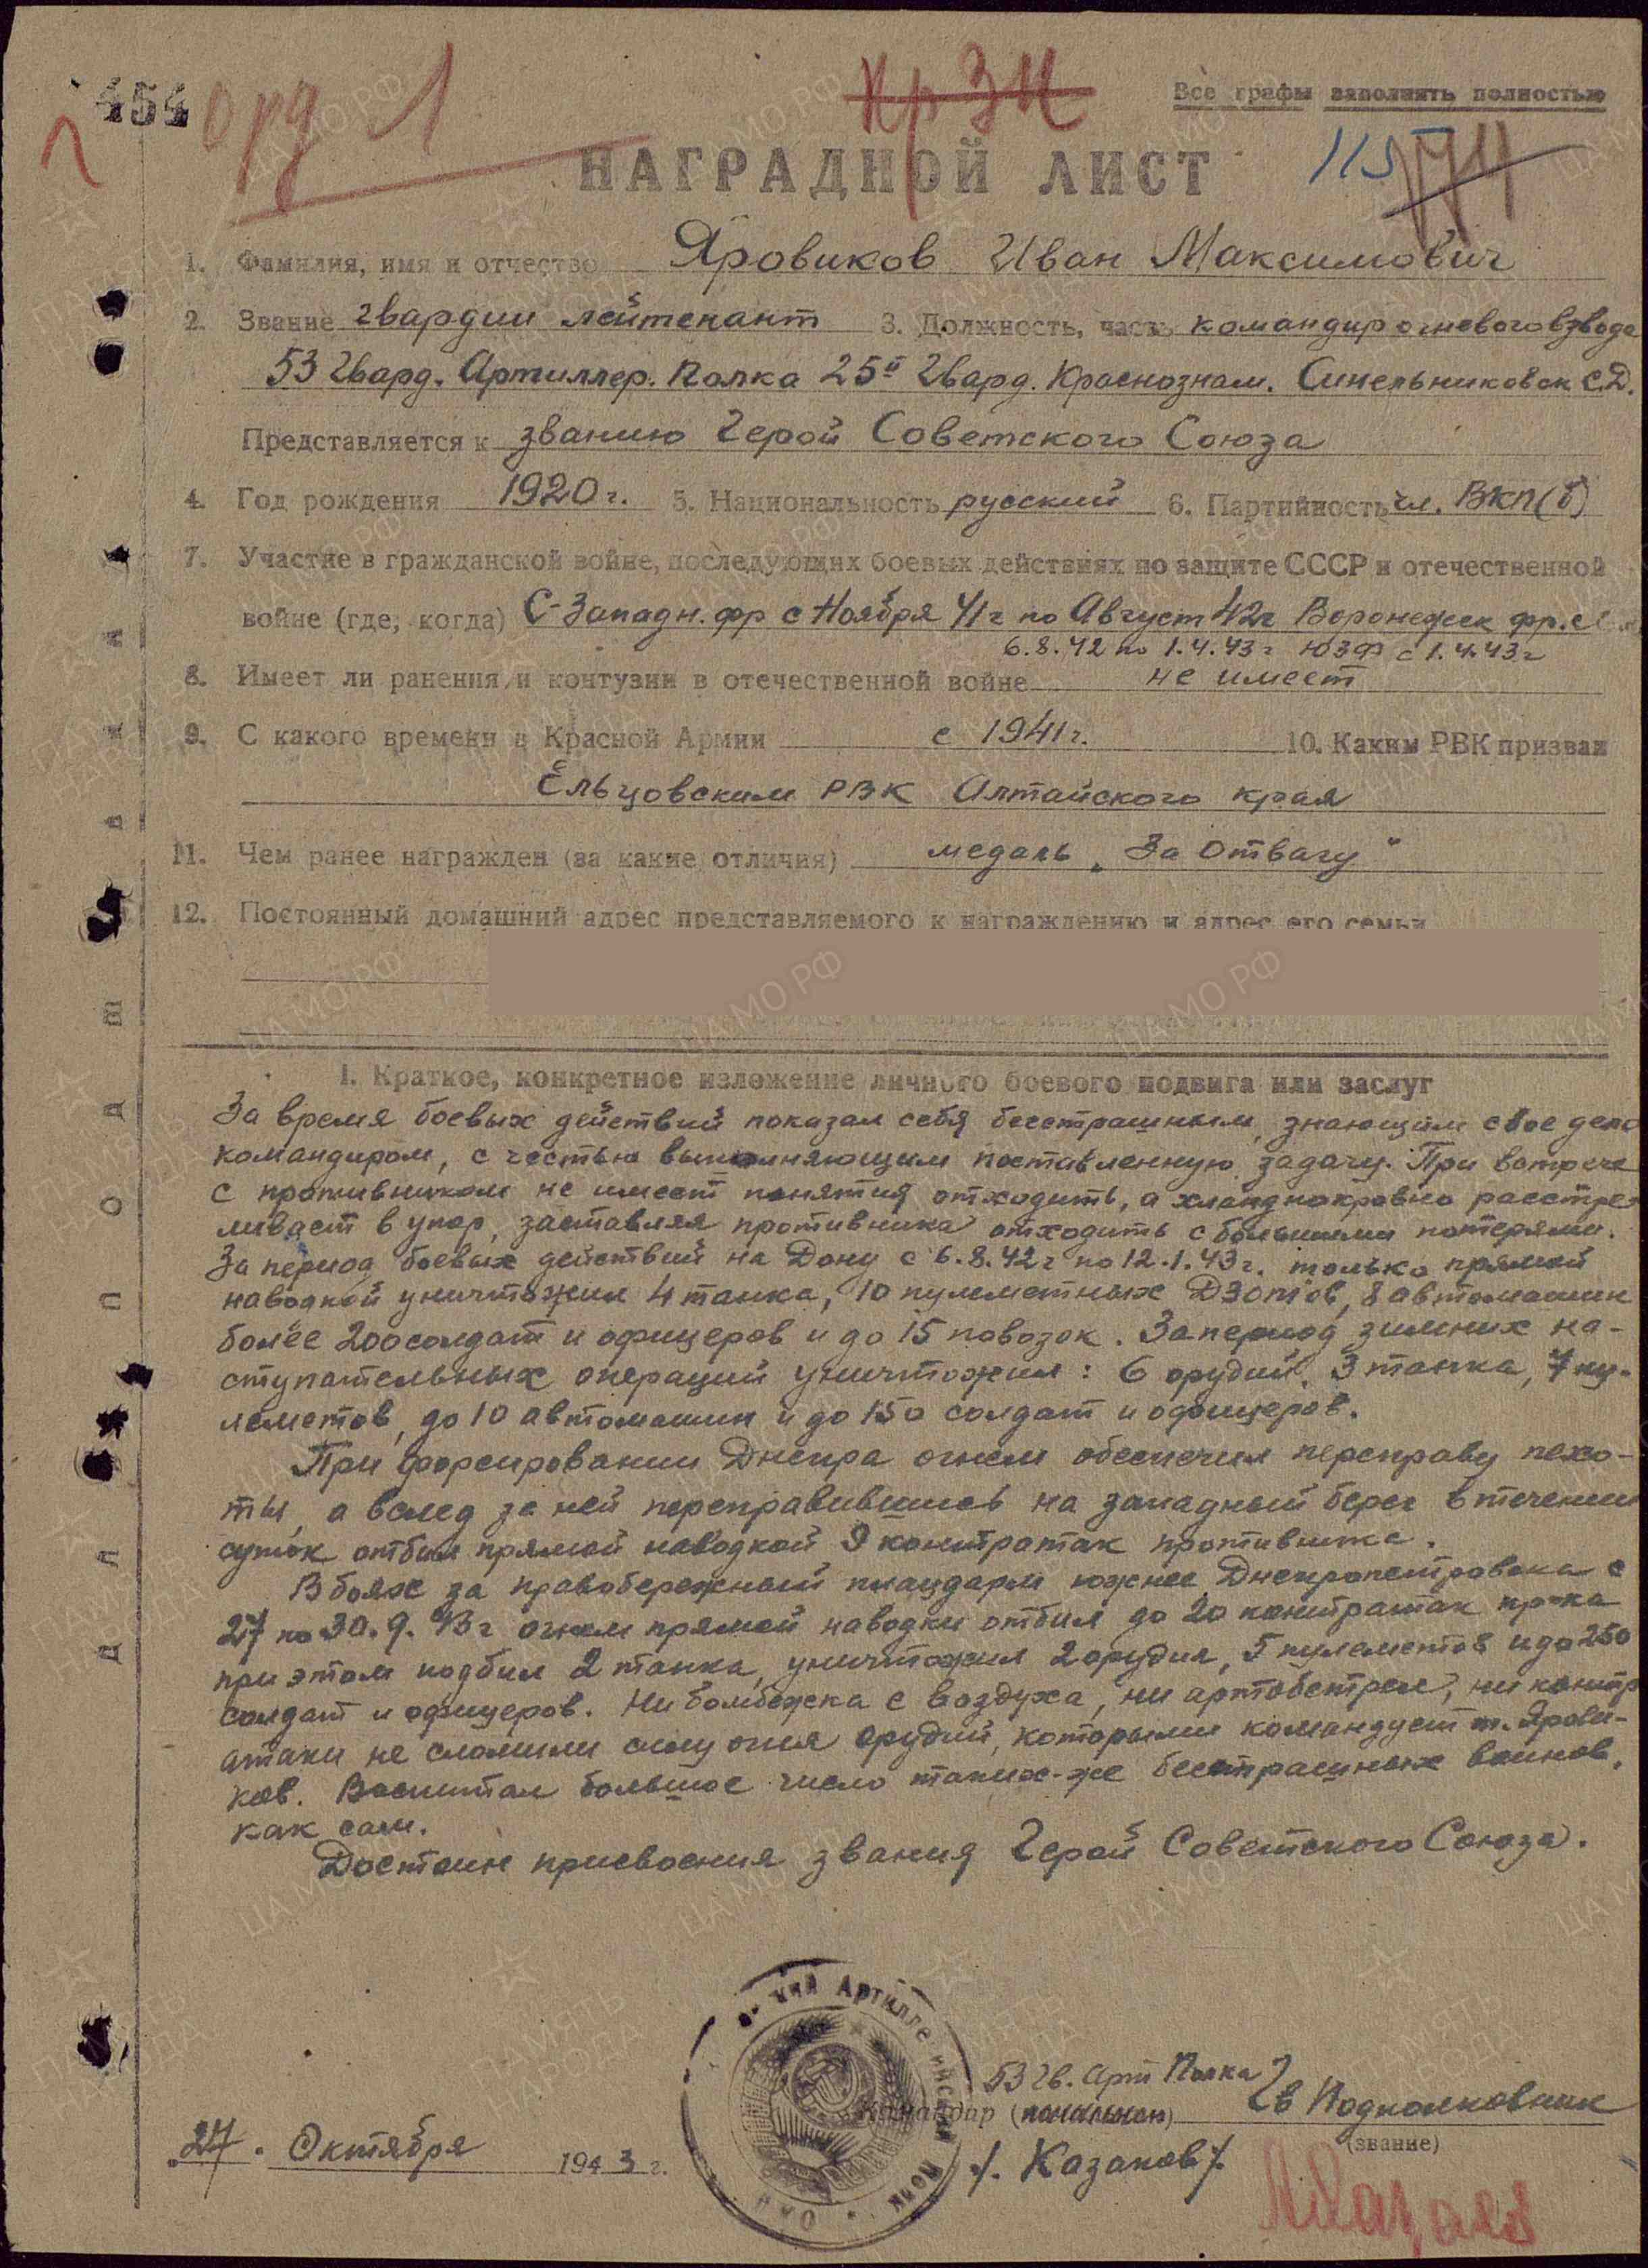 454
Орд 1
Кр ЗН
Все графы заполнять полностью
115
НАГРАДНОЙ ЛИСТ
1. Фамилия, имя и отчество Яровиков Иван Максимович
2. Звание гвардии лейтенант 3. Должность, часть командир огневого взвода
53 Гвард. Артиллер. Полка 25й Гвард. Краснознам. Синельниковск С.Д.
Представляется к званию Герой Советского Союза
4. Год рождения 1920 г. 5. Национальность русский 6. Партийность чл. ВКП(б)
7. Участие в гражданской войне, последующих боевых действиях по защите СССР и отечественной
войне (где, когда) С-Западн. фр с Ноября 41г по Август 42г Воронежск фр. с
6.8.42 по 1.4.43г ЮЗФ с 1.4.43г
8. Имеет ли ранения и контузии в отечественной войне не имеет
9. С какого времени в Красной Армии с 1941 г. 10. Каким РВК призван
Ельцовским РВК Алтайского края
11. Чем ранее награжден (за какие отличия) медаль „За Отвагу"
12. Постоянный домашний адрес представляемого к награждению и адрес его семьи
1. Краткое, конкретное изложение личного боевого подвига или заслуг
За время боевых действий показал себя бесстрашным, знающим свое дело
командиром, с честью выполняющим поставленную задачу. При встрече
с противником не имеет понятия отходить, а хладнокровно расстре
ливает в упор, заставляя противника отходить с большими потерями.
За период боевых действий на Дону с 6.8.42г по 12.1.43г. только прямой
наводкой уничтожил 4 танка, 10 пулеметных ДЗОТов, 8 автомашин
более 200 солдат и офицеров и до 15 повозок. За период зимних на-
ступательных операций уничтожил: 6 орудий, 3 танка, 7 пу-
леметов, до 10 автомашин и до 150 солдат и офицеров.
При форсировании Днепра огнем обеспечил переправу пехо-
ты, а вслед за ней переправившись на западный берег в течении
суток отбил прямой наводкой 9 контратак противника.
В боях за правобережный плацдарм южнее Днепропетровска с
27 по 30.9.43г огнем прямой наводки отбил до 20 контратак пр-ка
при этом подбил 2 танка, уничтожил 2 орудия, 5 пулеметов и до 250
солдат и офицеров. Ни бомбежка с воздуха, ни артобстрел, ни контр
атаки не сломили силу огня орудий, которыми командует т. Ярови-
ков. Воспитал большое число таких-же бесстрашных воинов,
как сам.
Достоин присвоения звания Герой Советского Союза.
53 Гв. Арт Полка
Командир (начальник) Гв Подполковник
(звание)
27. Октября 1943 г.
/. Казаков /.
Для подшивки